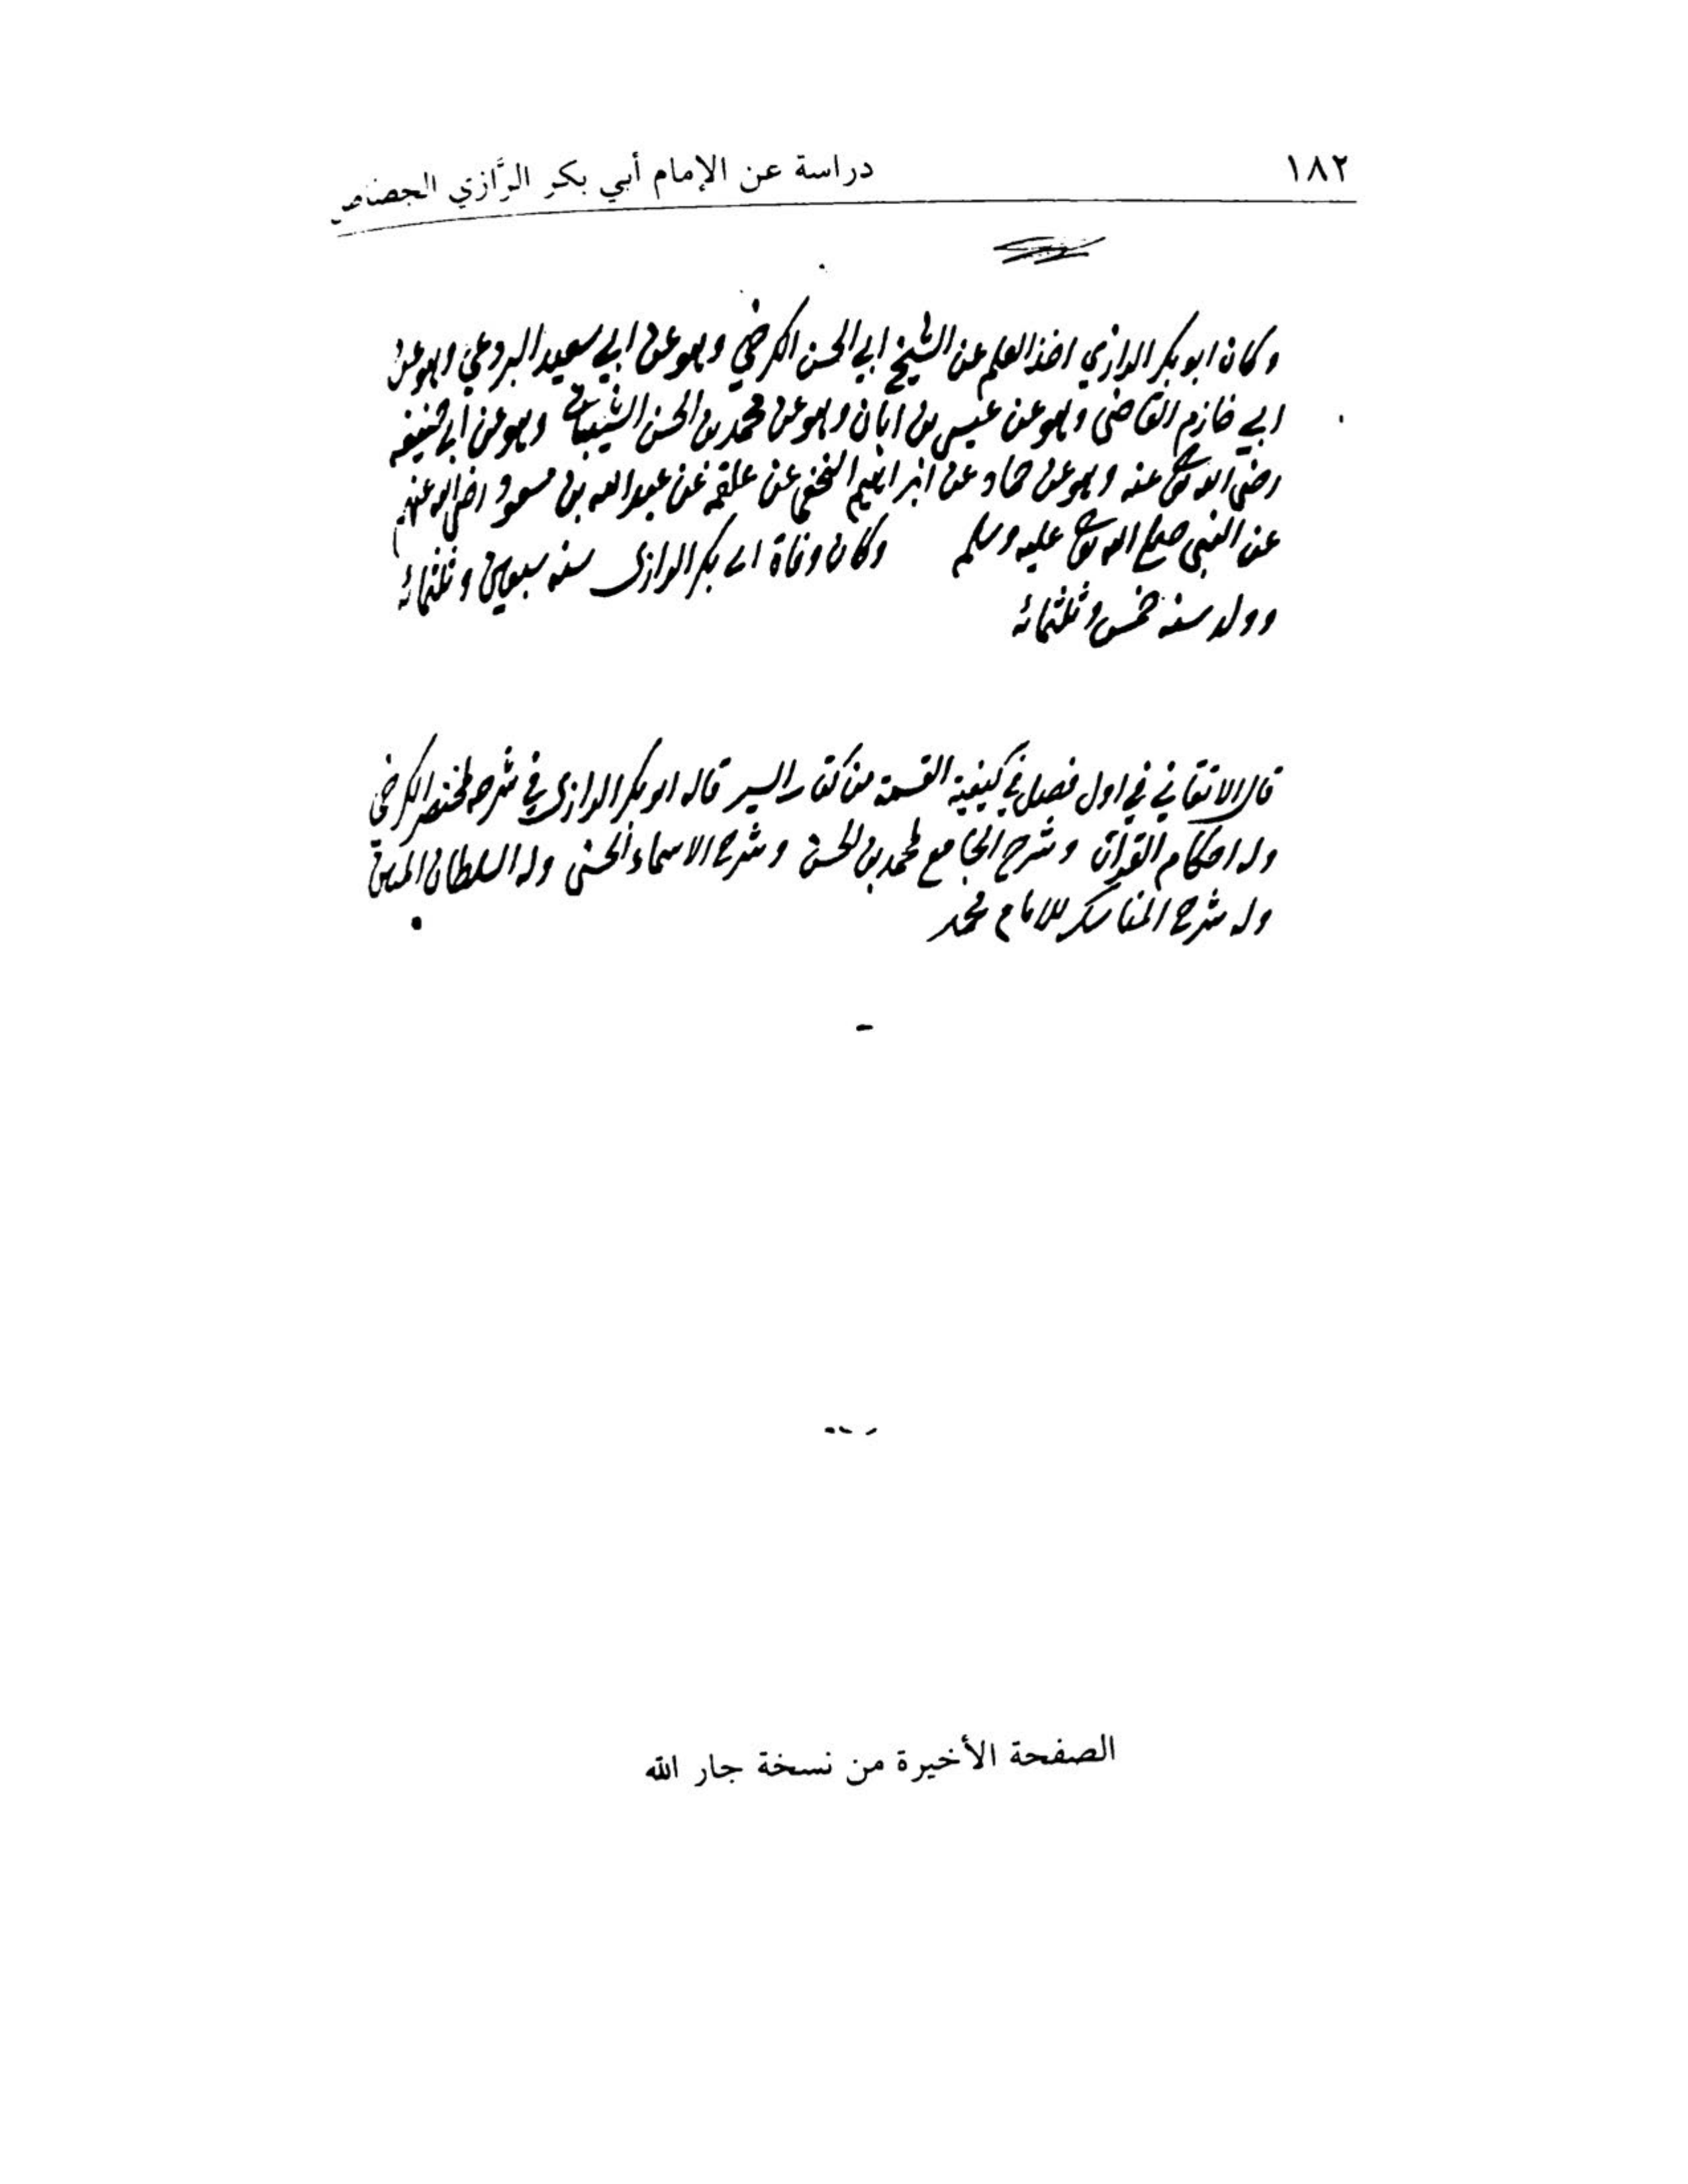 ١٨٢
دراسة عن الإمام أبي بكر الرَّازي الجصاص
وكان ابو بكر الرازي اخذ العلم عن الشيخ ابي الحسن الكرخي وهو عن ابي سعيد البردعي وهو عن
ابي خازم القاضي وهو عن عيسى بن ابان وهو عن محمد بن الحسن الشيباني وهو عن ابي حنيفه
رضي الله تعالى عنه وهو عن حماد عن ابراهيم النخعي عن علقمه عن عبد الله بن مسعود رضي الله عنهم
عن النبي صلى الله تعالى عليه وسلم وكان وفاة ابي بكر الرازي سنه سبعين وثلثمائة
وولد سنه خمس وثلثمائة
قال الاتقاني في اول فصل في كيفية القسمة من كتاب السير قاله ابو بكر الرازي في شرحه لمختصر الكرخي
وله احكام القرآن وشرح الجامع لمحمد بن الحسن وشرح الاسماء الحسنى وله
وله شرح المناسك للامام محمد
الصفحة الأخيرة من نسخة جار الله